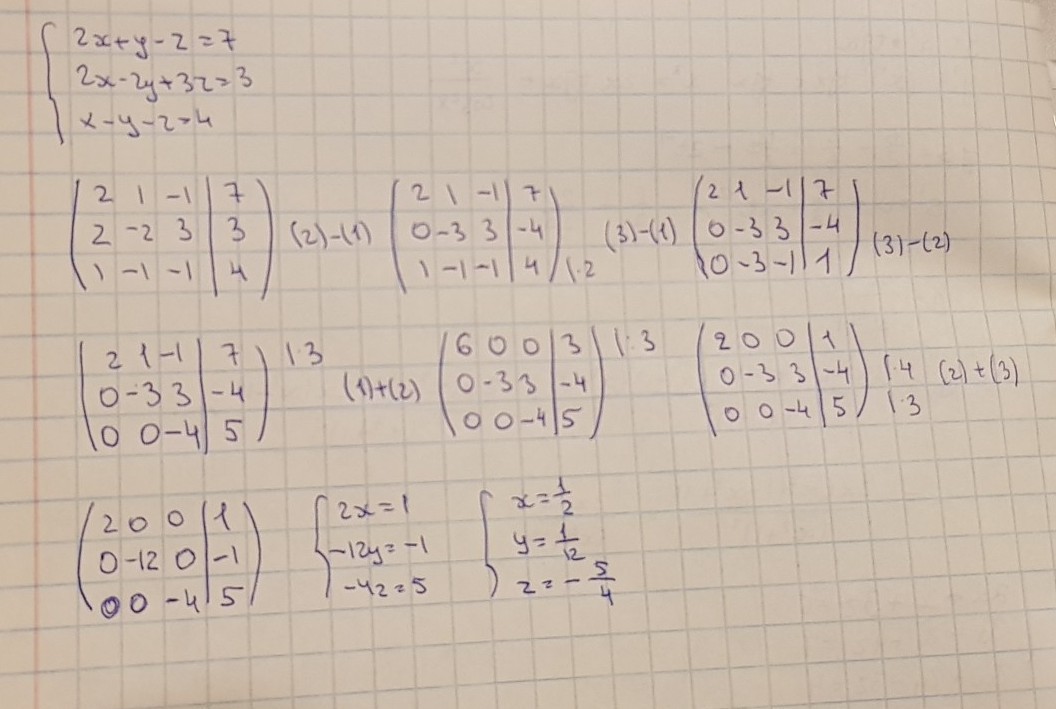 2x+y-z=7
2x-2y+3z=3
x-y-z=4
2 1 -1 | 7
2 -2 3 | 3
1 -1 -1 | 4
(2)-(1)
2 1 -1 | 7
0 -3 3 | -4
1 -1 -1 | 4 |·2
(3)-(1)
2 1 -1 | 7
0 -3 3 | -4
0 -3 -1 | 1
(3)-(2)
2 1 -1 | 7 |·3
0 -3 3 | -4
0 0 -4 | 5
(1)+(2)
6 0 0 | 3 |:3
0 -3 3 | -4
0 0 -4 | 5
2 0 0 | 1
0 -3 3 | -4 |·4
0 0 -4 | 5 |·3
(2)+(3)
2 0 0 | 1
0 -12 0 | -1
0 0 -4 | 5
2x=1
-12y=-1
-4z=5
x=1/2
y=1/12
z=-5/4